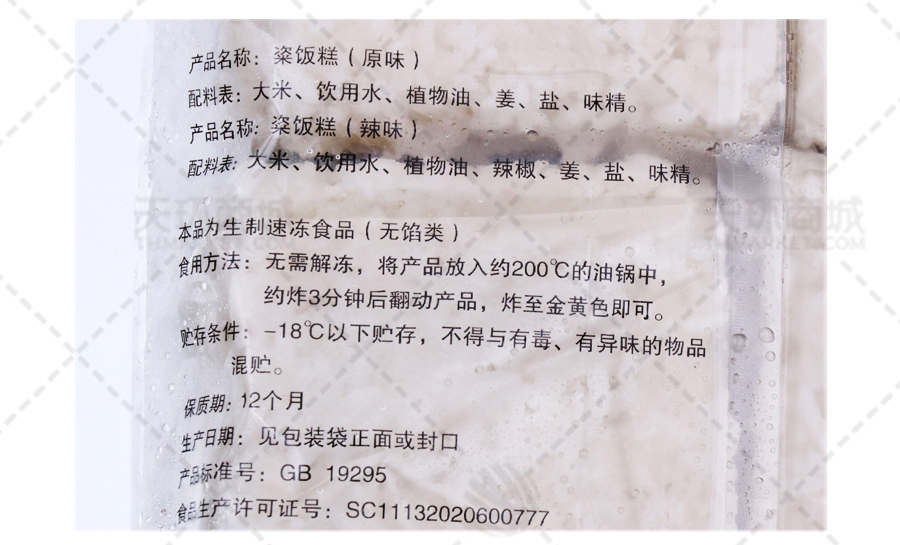 产品名称：粢饭糕（原味）
配料表：大米、饮用水、植物油、姜、盐、味精。
产品名称：粢饭糕（辣味）
配料表：大米、饮用水、植物油、辣椒、姜、盐、味精。
本品为生制速冻食品（无馅类）
食用方法：无需解冻，将产品放入约200℃的油锅中，
约炸3分钟后翻动产品，炸至金黄色即可。
贮存条件：-18℃以下贮存，不得与有毒、有异味的物品
混贮。
保质期：12个月
生产日期：见包装袋正面或封口
产品标准号：GB 19295
食品生产许可证号：SC11132020600777